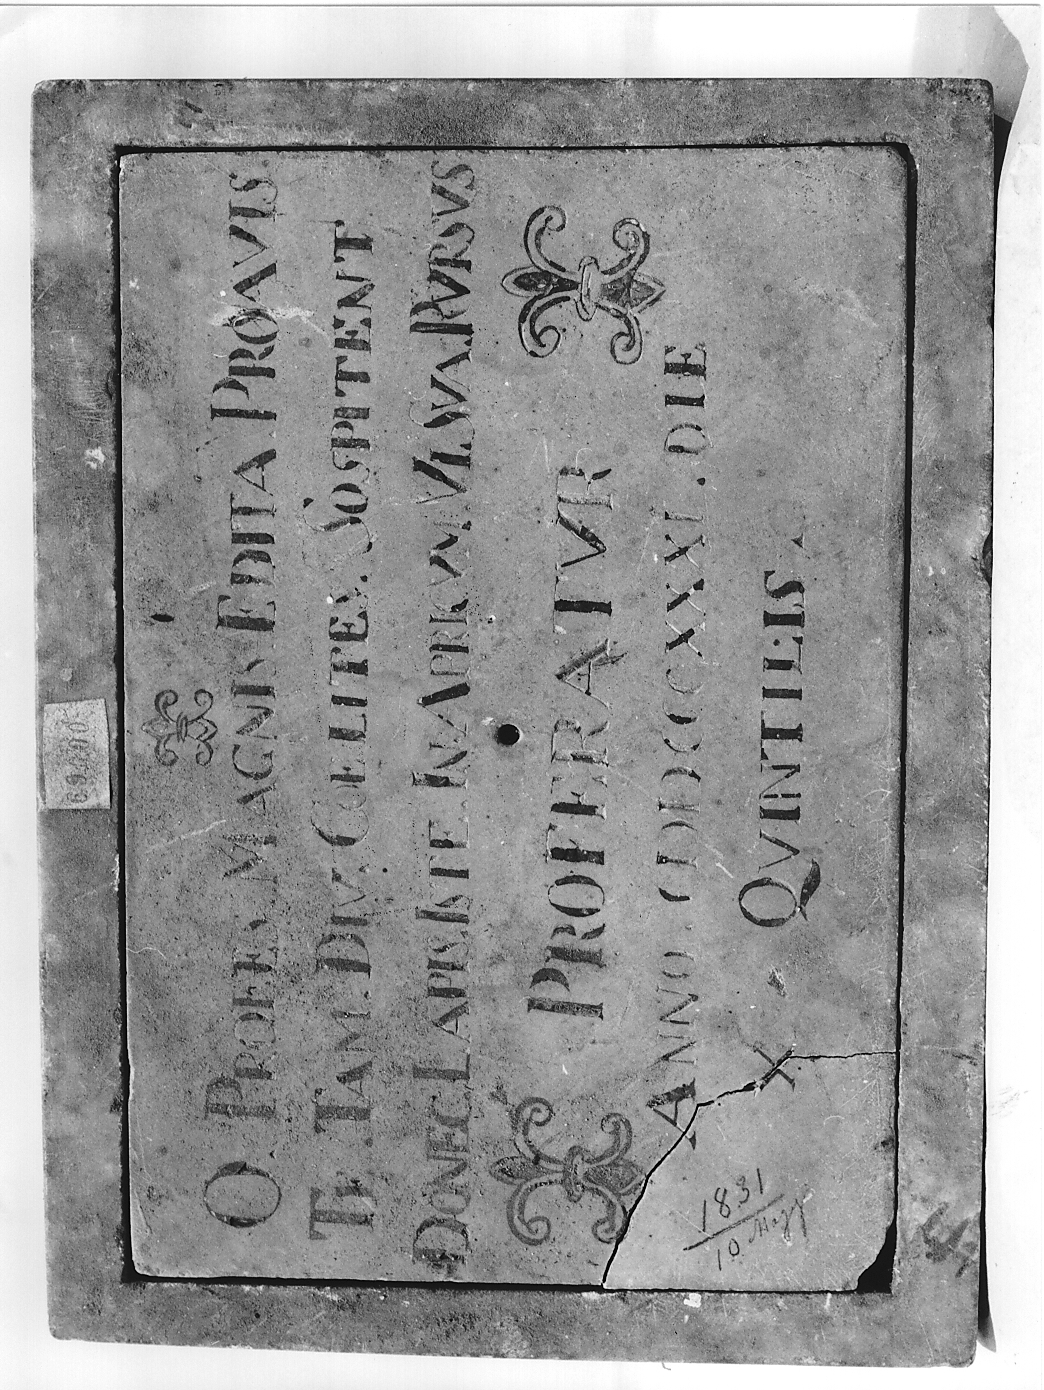 O PROLES MAGNIS EDITA PROAVIS.
TE TAM DIV COELITES SOSPITENT
DONEC LAPIS ISTE IN APRICVM VI SVA RVRSVS
PROFERATVR
ANNO. CIƆIƆCCCXXXI. DIE
X. QVINTILIS
1831
10